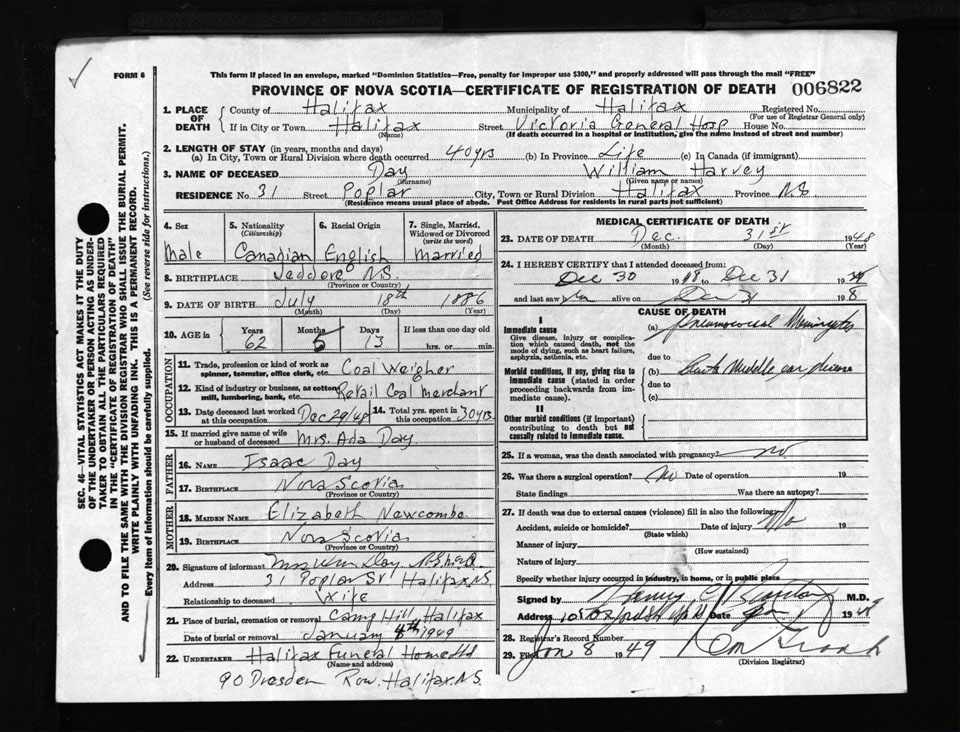 FORM 6
This form if placed in an envelope, marked "Dominion Statistics—Free, penalty for improper use $300," and properly addressed will pass through the mail "FREE"
PROVINCE OF NOVA SCOTIA—CERTIFICATE OF REGISTRATION OF DEATH 006822
1. PLACE OF DEATH County of Halifax Municipality of Halifax Registered No.
(For use of Registrar General only)
If in City or Town Halifax Street Victoria General Hosp House No.
(Name) (If death occurred in a hospital or institution, give the name instead of street and number)
2. LENGTH OF STAY (in years, months and days)
(a) In City, Town or Rural Division where death occurred 40 yrs (b) In Province Life (c) In Canada (if immigrant)
3. NAME OF DECEASED Day William Harvey
(Surname) (Given name or names)
RESIDENCE No. 31 Street Poplar City, Town or Rural Division Halifax Province N.S.
(Residence means usual place of abode. Post Office Address for residents in rural parts not sufficient)
4. Sex 5. Nationality (Citizenship) 6. Racial Origin 7. Single, Married, Widowed or Divorced (write the word)
Male Canadian English Married
8. BIRTHPLACE Jeddore N.S.
(Province or Country)
9. DATE OF BIRTH July 18th 1886
(Month) (Day) (Year)
10. AGE in Years Months Days If less than one day old
62 5 13 hrs. or min.
OCCUPATION
11. Trade, profession or kind of work as spinner, teamster, office clerk, etc. Coal Weigher
12. Kind of industry or business, as cotton mill, lumbering, bank, etc. Retail Coal Merchant
13. Date deceased last worked at this occupation Dec 29/48 14. Total yrs. spent in this occupation 30 yrs.
15. If married give name of wife or husband of deceased Mrs. Ada Day
FATHER
16. NAME Isaac Day
17. BIRTHPLACE Nova Scotia
(Province or Country)
MOTHER
18. MAIDEN NAME Elizabeth Newcombe
19. BIRTHPLACE Nova Scotia
(Province or Country)
20. Signature of informant Mrs Wm Day
Address 31 Poplar St Halifax N.S.
Relationship to deceased Wife
21. Place of burial, cremation or removal Camp Hill, Halifax
Date of burial or removal January 4th 1949
22. UNDERTAKER Halifax Funeral Home Ltd
(Name and address)
90 Dresden Row. Halifax N.S.
MEDICAL CERTIFICATE OF DEATH
23. DATE OF DEATH Dec. 31st 1948
(Month) (Day) (Year)
24. I HEREBY CERTIFY that I attended deceased from:
Dec 30 1948 to Dec 31 1948
and last saw him alive on Dec 31 1948
CAUSE OF DEATH
I
Immediate cause (a) pneumococcal Meningitis
Give disease, injury or complication which caused death, not the mode of dying, such as heart failure, asphyxia, asthenia, etc.
due to
Morbid conditions, if any, giving rise to immediate cause (stated in order proceeding backwards from immediate cause).
(b) Acute Middle ear disease
due to
(c)
II
Other morbid conditions (if important) contributing to death but not causally related to immediate cause.
25. If a woman, was the death associated with pregnancy? no
26. Was there a surgical operation? No Date of operation 19
State findings Was there an autopsy?
27. If death was due to external causes (violence) fill in also the following: No
Accident, suicide or homicide? Date of injury 19
(State which)
Manner of injury
(How sustained)
Nature of injury
Specify whether injury occurred in industry, in home, or in public place
Signed by M.D.
Address Date Jan 1 1949
28. Registrar's Record Number
29. Filed Jan 8 1949
(Division Registrar)
SEC. 46—VITAL STATISTICS ACT MAKES IT THE DUTY
OF THE UNDERTAKER OR PERSON ACTING AS UNDERTAKER
TO OBTAIN ALL THE PARTICULARS REQUIRED
IN THE "CERTIFICATE OF REGISTRATION OF DEATH"
AND TO FILE THE SAME WITH THE DIVISION REGISTRAR WHO SHALL ISSUE THE BURIAL PERMIT.
WRITE PLAINLY WITH UNFADING INK. THIS IS A PERMANENT RECORD.
Every item of information should be carefully supplied. (See reverse side for instructions.)